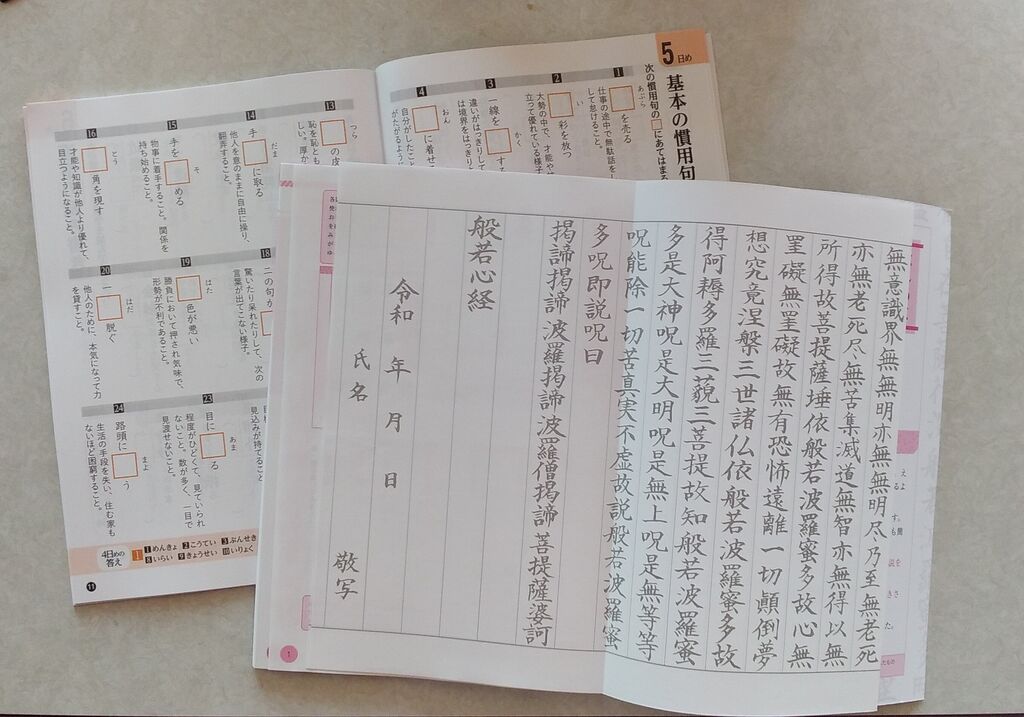 5日め
基本の慣用句
次の慣用句の□にあてはまる
1
あぶら
□を売る
仕事の途中で無駄話をし
して怠けること。
2
い
□彩を放つ
大勢の中で、才能や
立って優れている様子
3
一線を□す
かく
違いがはっきりして
は境界をはっきりと
4
おん
□に着せ
自分がしたこ
がたがるように
13
つら
□の皮
恥を恥とも
しい。厚か
14
手□に取る
だま
他人を意のままに自由に操り、
翻弄すること。
15
手を□める
そ
物事に着手すること。関係を
持ち始めること。
16
とう
□角を現す
才能や知識が他人より優れて、
目立つようになること。
18
二の句が□
驚いたり呆れたりして、次の
言葉が出てこない様子。
19
はた
□色が悪い
勝負において押され気味で、
形勢が不利であること。
20
一□脱ぐ
はだ
他人のために、本気になって力
を貸すこと。
見込みが持てること
23
目に□る
あま
程度がひどくて、見ていられ
ないこと。数が多く、一目で
見渡せないこと。
24
路頭に□う
まよ
生活の手段を失い、住む家も
ないほど困窮すること。
4日めの答え
1
1めんきょ 2こうてい 3ぶんせき
8いらい 9きょうせい 10いりょく
11
無意識界無無明亦無無明尽乃至無老死
亦無老死尽無苦集滅道無智亦無得以無
所得故菩提薩埵依般若波羅蜜多故心無
罣礙無罣礙故無有恐怖遠離一切顛倒夢
想究竟涅槃三世諸仏依般若波羅蜜多故
得阿耨多羅三藐三菩提故知般若波羅蜜
多是大神呪是大明呪是無上呪是無等等
呪能除一切苦真実不虚故説般若波羅蜜
多呪即説呪曰
掲諦掲諦波羅掲諦波羅僧掲諦菩提薩婆訶
般若心経
令和 年 月 日
氏名 敬写
1